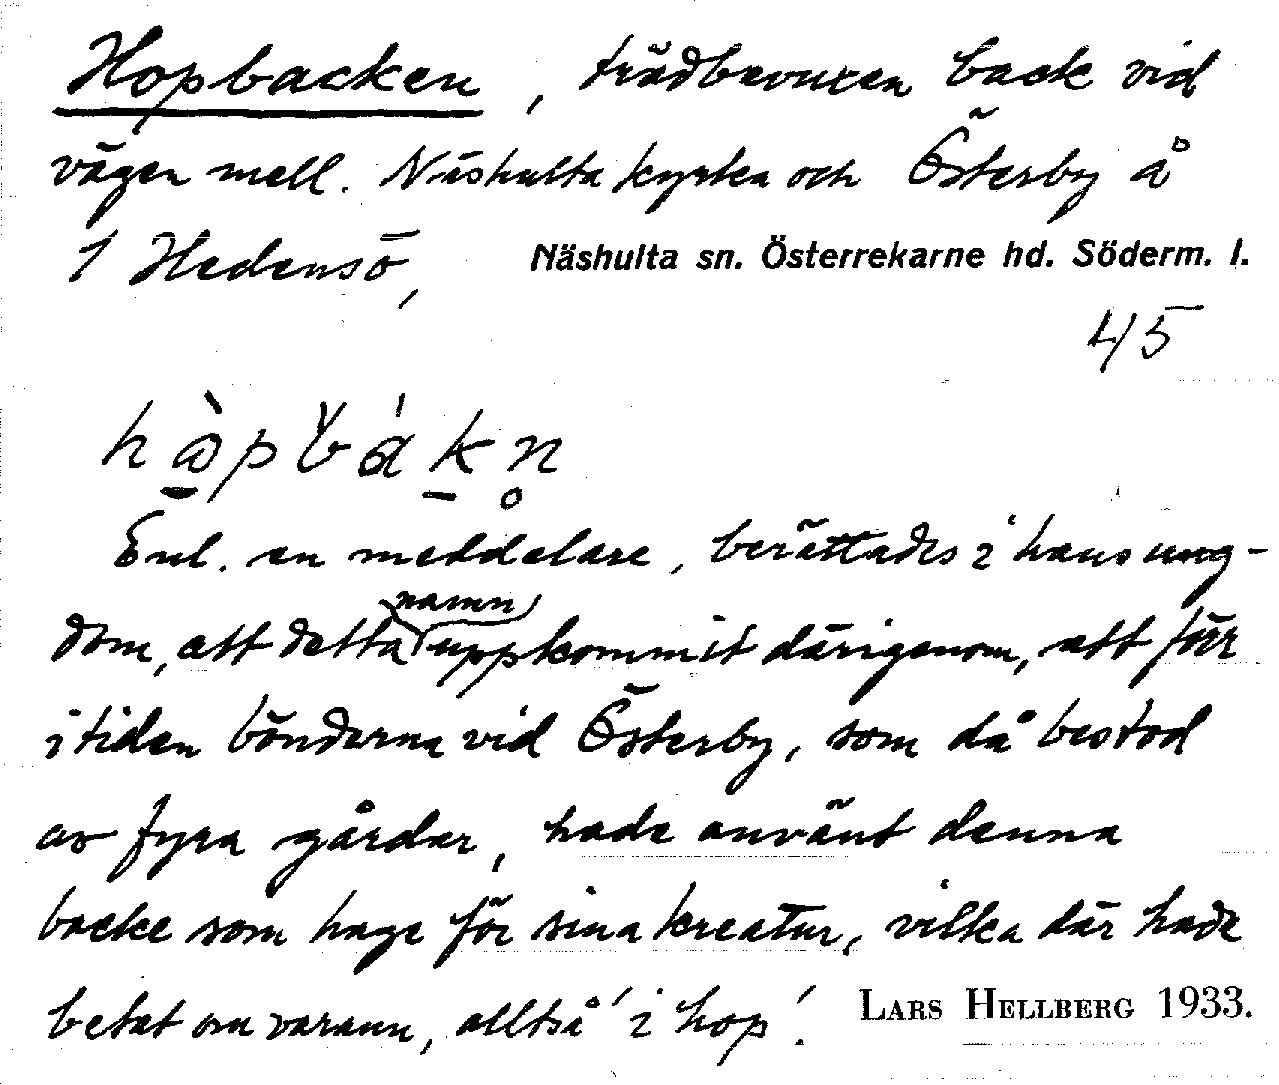 Hopbacken, trädbevuxen back vid
vägen mell. Näshulta kyrka och Österby å
1 Hedensö,
Näshulta sn. Österrekarne hd. Söderm. l.
45
Enl. en meddelare, berättades i hans ung-
dom, att detta namn uppkommit därigenom, att förr
i tiden bönderna vid Österby, som då bestod
av fyra gårdar, hade använt denna
backe som hage för sina kreatur, vilka där hade
betat om varann, alltså 'i hop'.
LARS HELLBERG 1933.